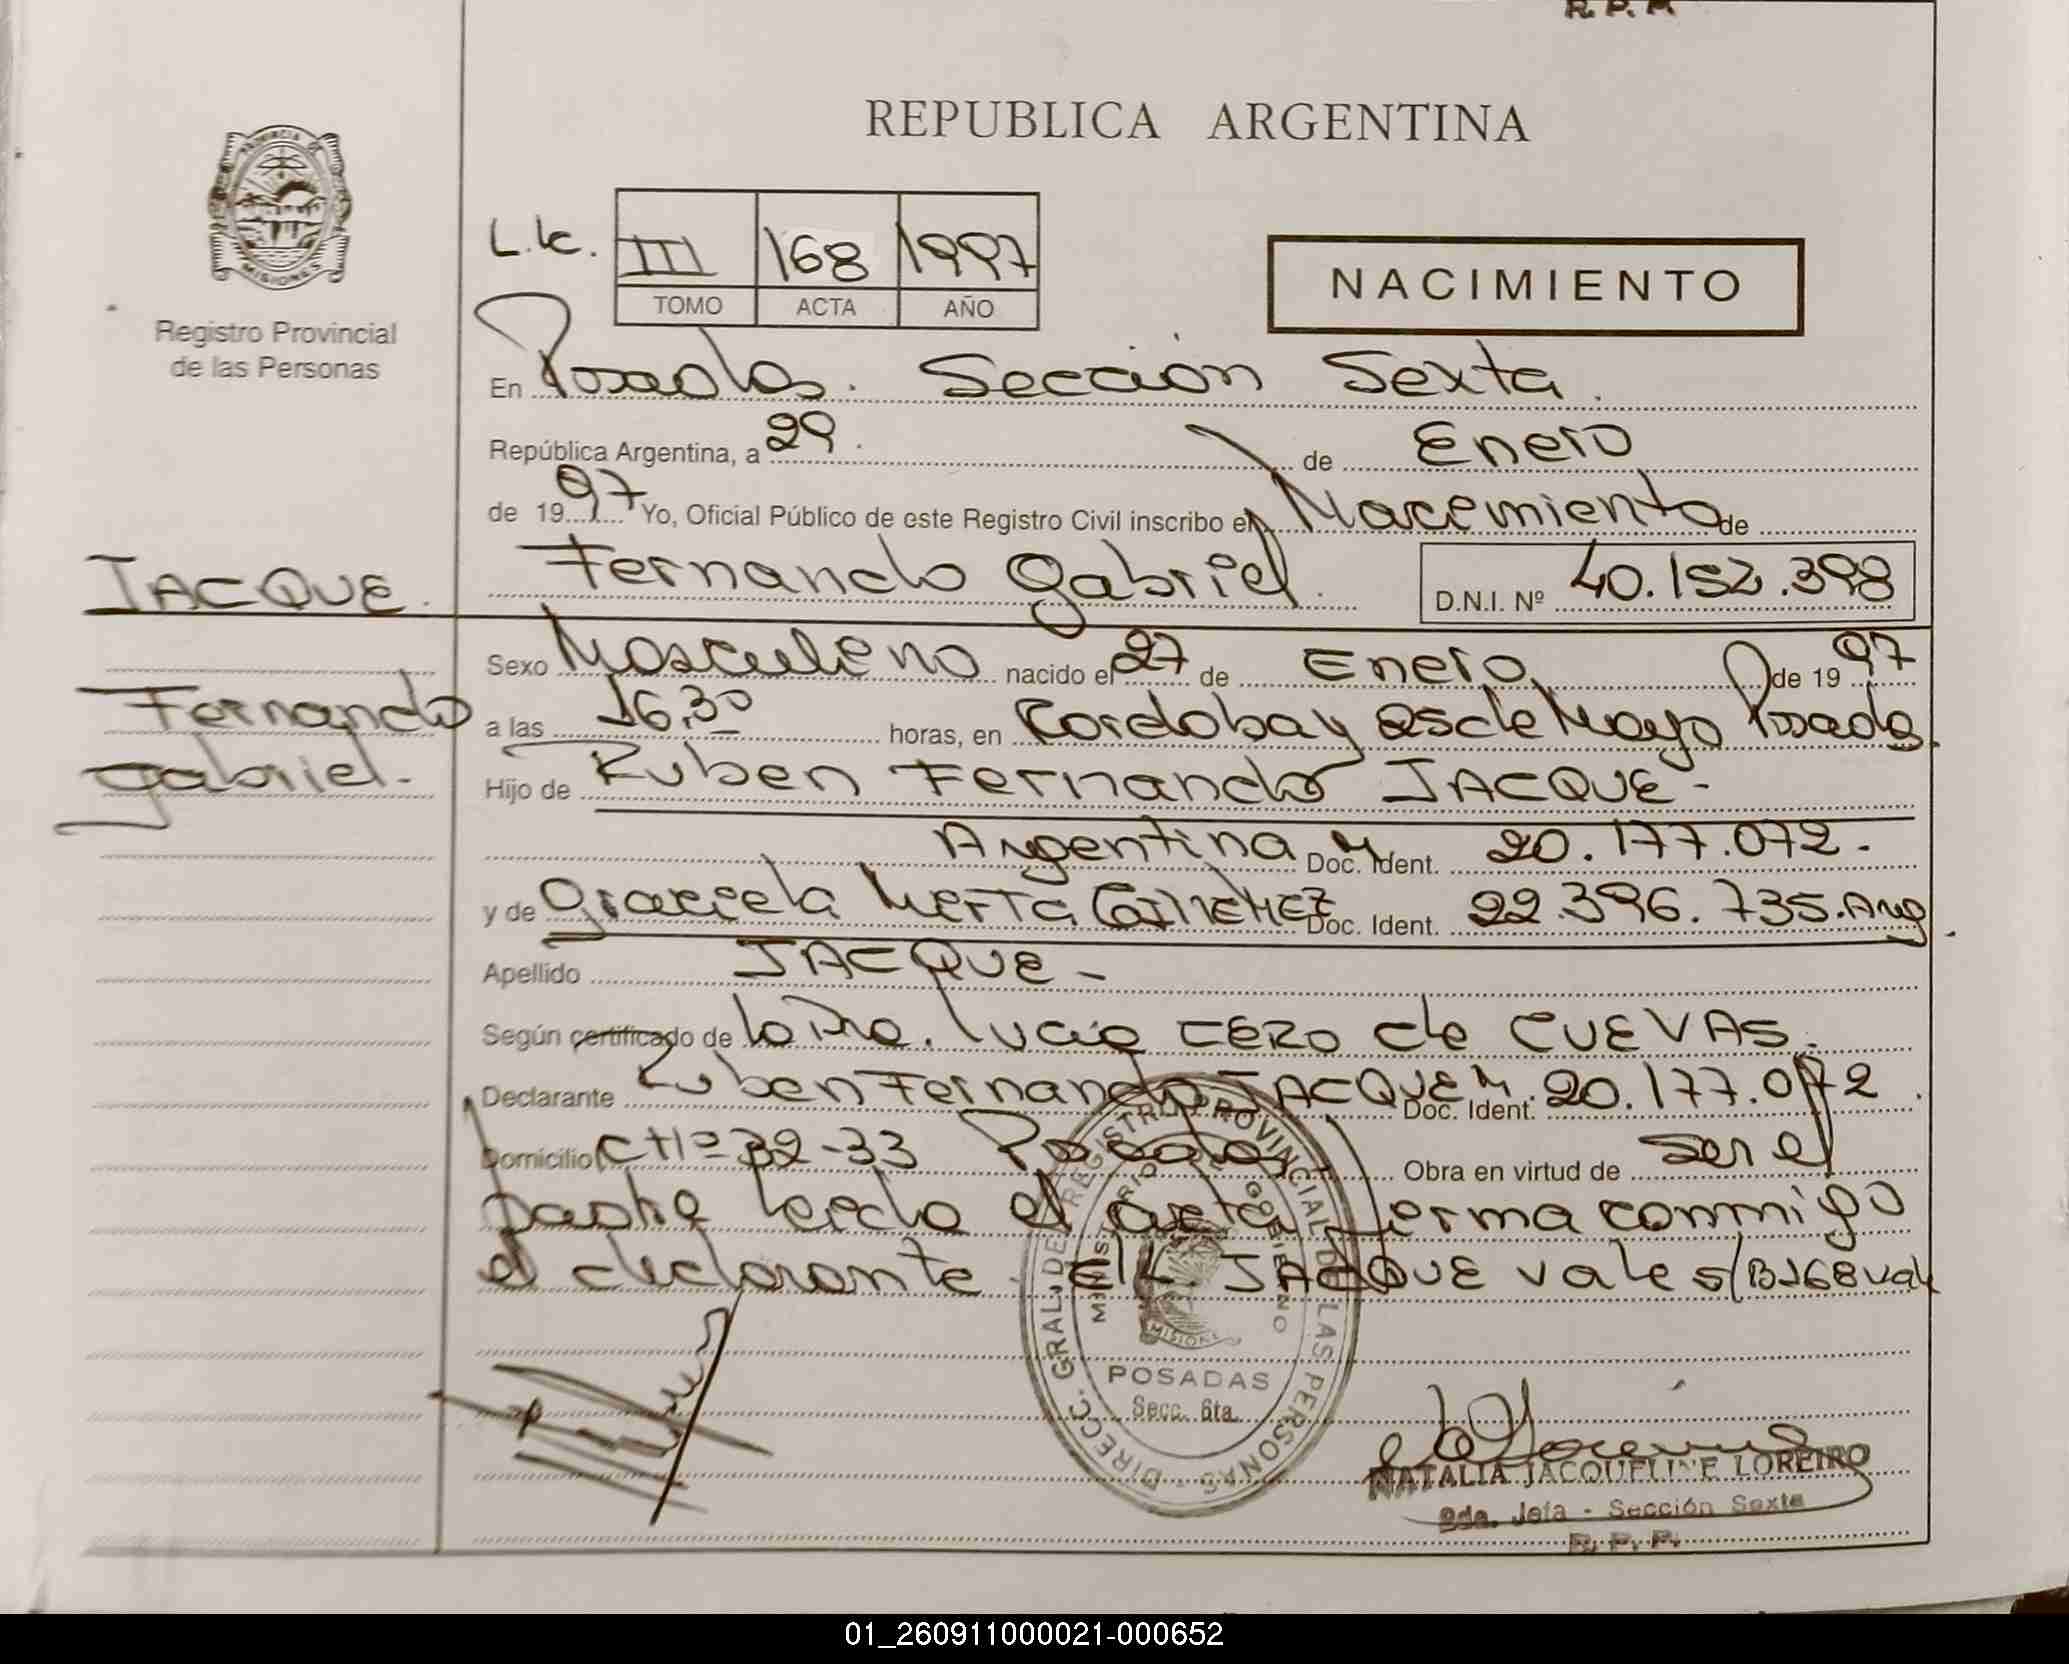 R. P. P.
REPUBLICA ARGENTINA
PROVINCIA DE
MISIONES
Registro Provincial
de las Personas
L.k.
III 168 1997
TOMO ACTA AÑO
NACIMIENTO
En Posadas. Sección Sexta.
República Argentina, a 29. de Enero
de 1997 Yo, Oficial Público de este Registro Civil inscribo el Nacimiento de
JACQUE.
Fernando Gabriel. D.N.I. Nº 40.152.398
Sexo Masculino nacido el 27 de Enero de 1997
Fernando
Gabriel.-
a las 16,30 horas, en Cordoba y 25 de Mayo Posadas.
Hijo de Ruben Fernando JACQUE-
Argentina M Doc. Ident. 20.177.072.-
y de Graciela Mirta GIMENEZ Doc. Ident. 22.396.735. Arg
Apellido JACQUE-
Según certificado de la Dra. Lucia CERO de CUEVAS.
Declarante Ruben Fernando JACQUE M. Doc. Ident. 20.177.072.
Domicilio CH Nº 32-33 Posadas Obra en virtud de ser el
padre leida el acta, firma conmigo
el declarante. E/L. JACQUE vale s/B 168 vale
DIRECC. GRAL. DE REGISTRO PROVINCIAL DE LAS PERSONAS
MINISTERIO DE GOBIERNO
MISIONES
POSADAS
Secc. 6ta.
NATALIA JACQUELINE LOREIRO
2da. Jefa - Sección Sexta
R. P. P.
01_260911000021-000652